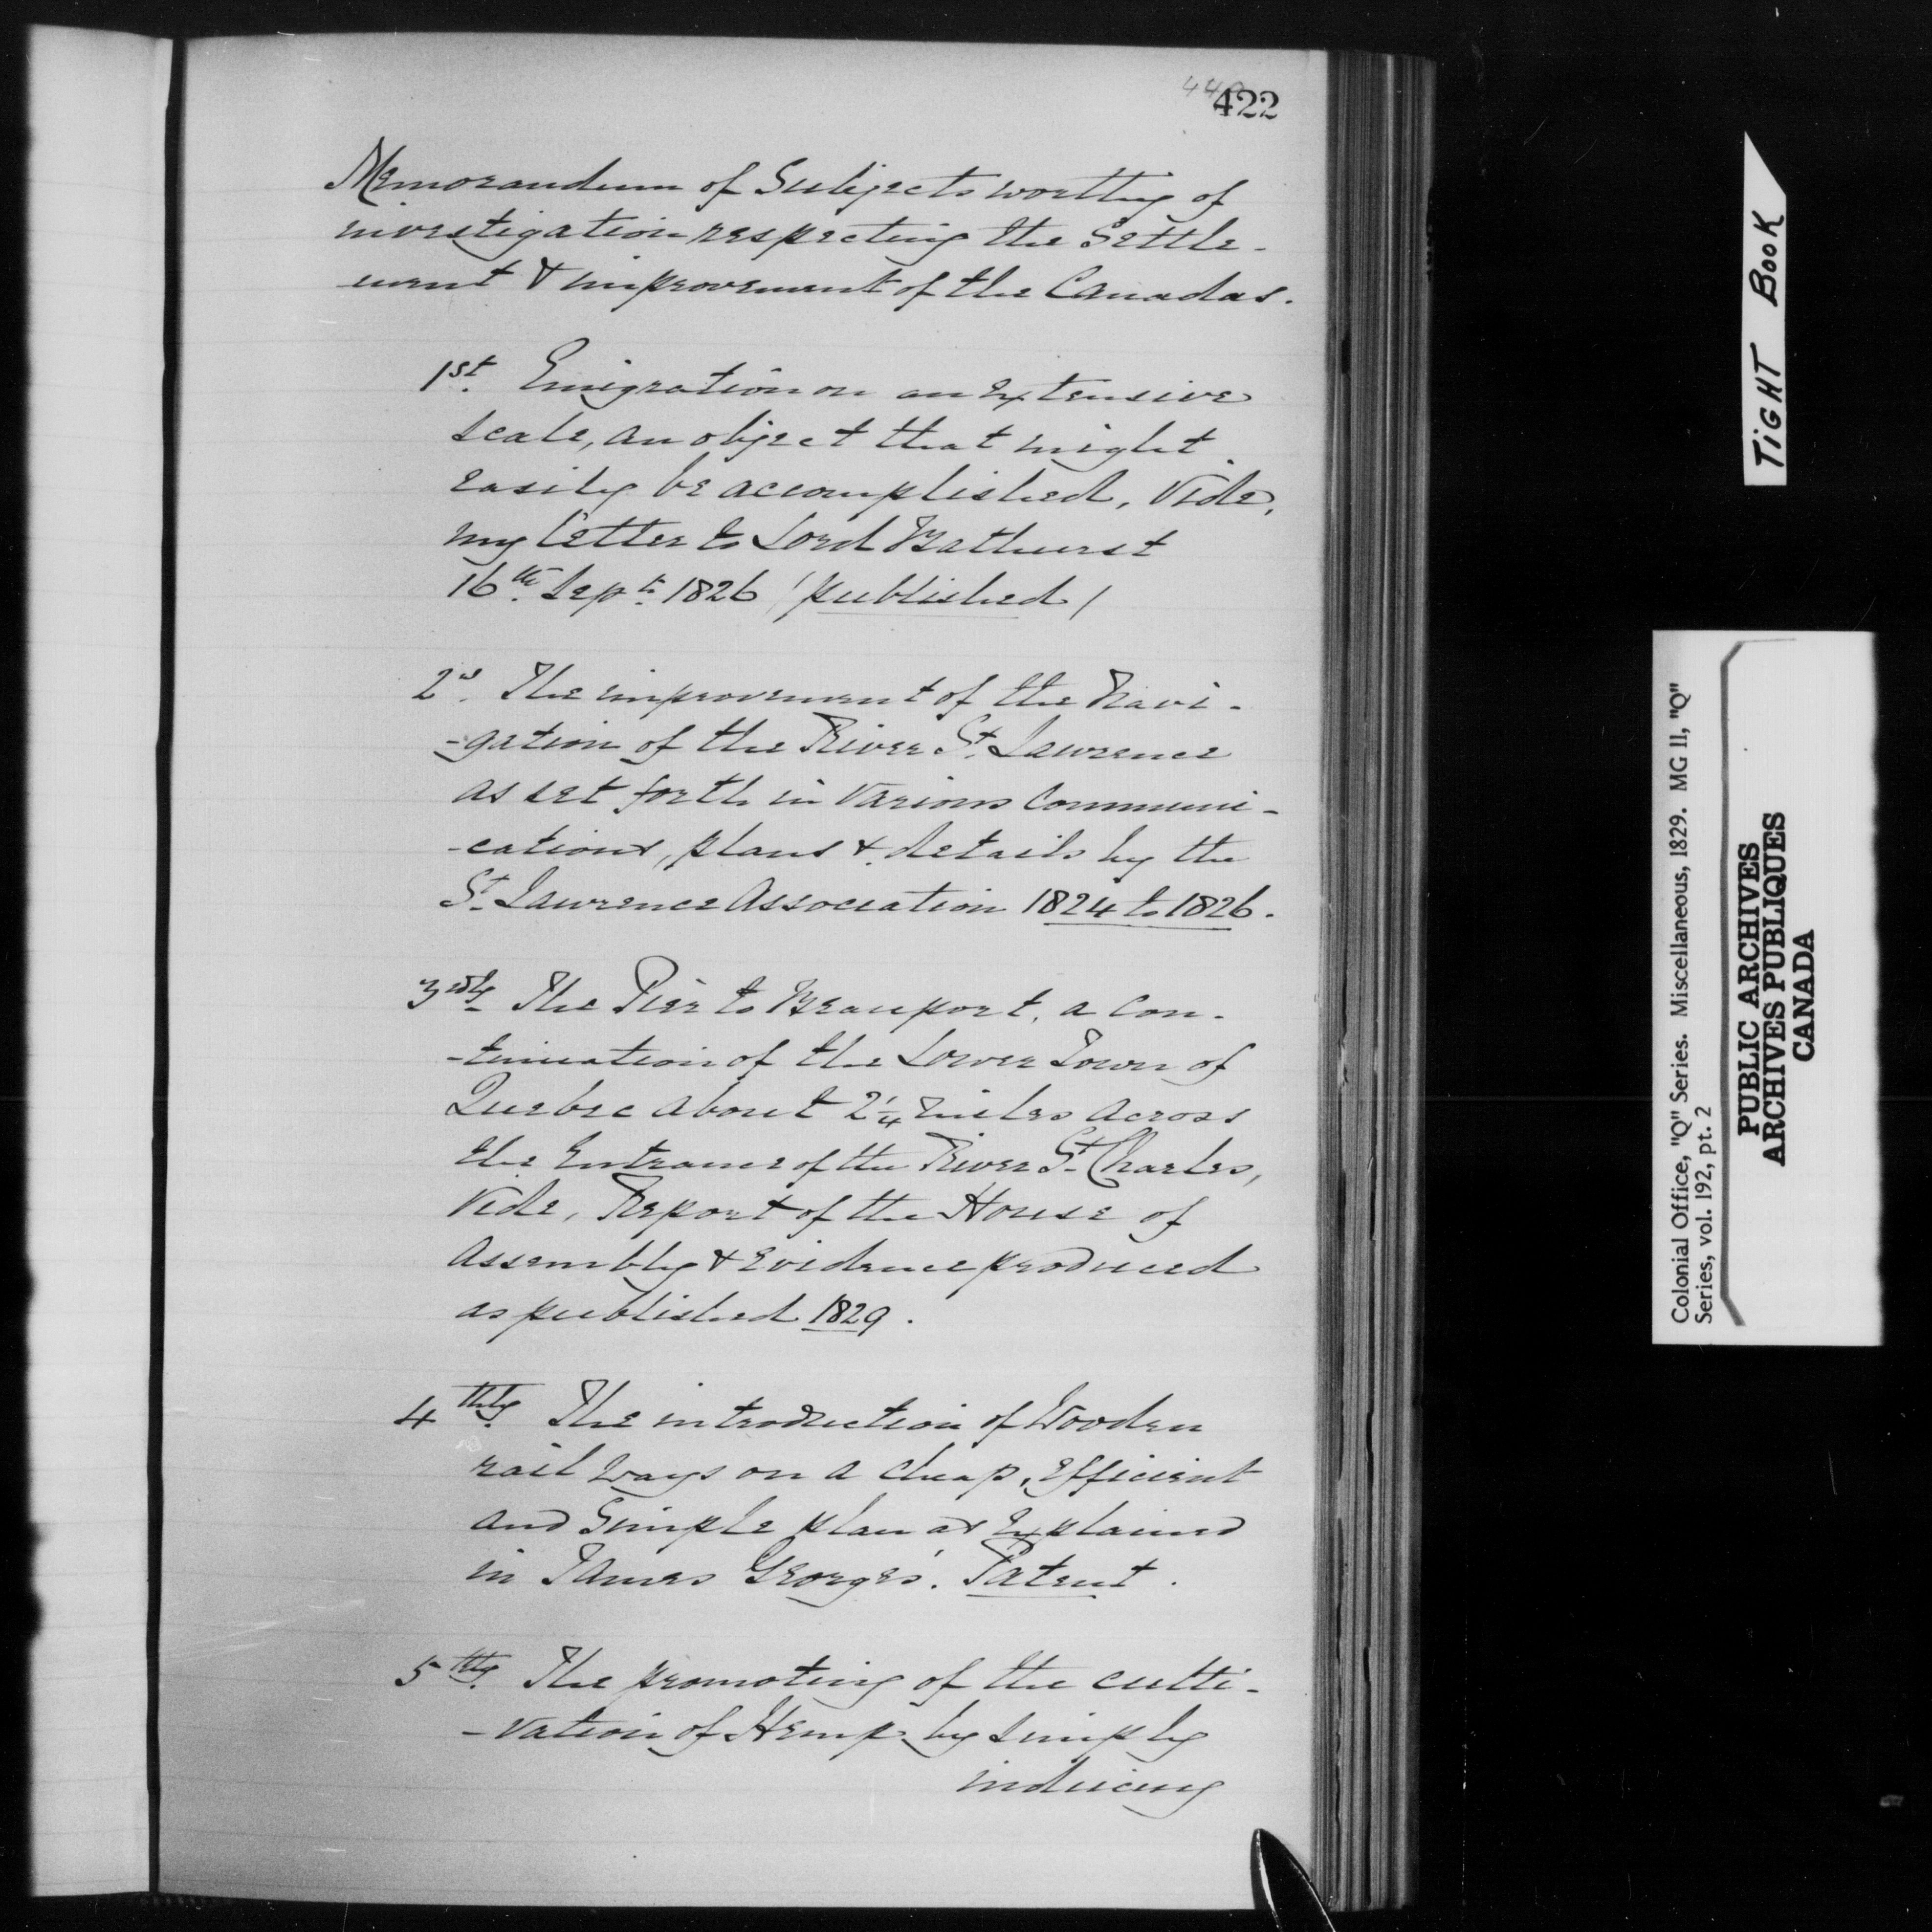 422
Memorandum of Subjects worthy of
investigation respecting the Settle-
-ment & improvement of the Canadas.
1st. Emigration on an extensive
scale, an object that might
easily be accomplished, Vide,
my letter to Lord Bathurst
16th. Sept. 1826 (published)
2d. The improvement of the Navi-
-gation of the River St. Lawrence
as set forth in various Communi-
-cations, plans & details by the
St. Lawrence Association 1824 to 1826.
3rdly The Pier to Beauport, a con-
-tinuation of the Lower Town of
Quebec about 2 1/4 miles across
the Entrance of the River St. Charles,
Vide, Report of the House of
Assembly & Evidence produced
as published 1829.
4thly The introduction of Wooden
rail ways on a cheap, efficient
and Simple plan as Explained
in James George's. Patent.
5thly. The promoting of the culti-
-vation of Hemp by simply
inducing
TiGHT BOOK
Colonial Office, "Q" Series. Miscellaneous, 1829. MG 11, "Q"
Series, vol. 192, pt. 2
PUBLIC ARCHIVES
ARCHIVES PUBLIQUES
CANADA